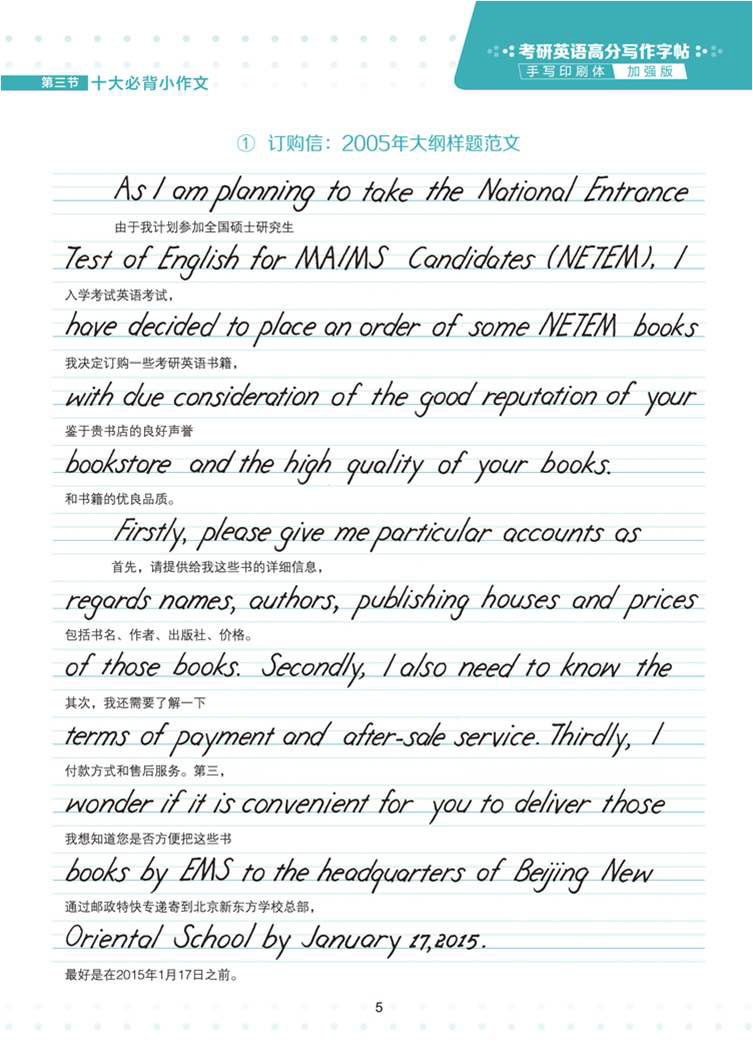 考研英语高分写作字帖
手写印刷体 加强版
第三节 十大必背小作文
① 订购信：2005年大纲样题范文
As I am planning to take the National Entrance
由于我计划参加全国硕士研究生
Test of English for MA/MS Candidates (NETEM), I
入学考试英语考试，
have decided to place an order of some NETEM books
我决定订购一些考研英语书籍，
with due consideration of the good reputation of your
鉴于贵书店的良好声誉
bookstore and the high quality of your books.
和书籍的优良品质。
Firstly, please give me particular accounts as
首先，请提供给我这些书的详细信息，
regards names, authors, publishing houses and prices
包括书名、作者、出版社、价格。
of those books. Secondly, I also need to know the
其次，我还需要了解一下
terms of payment and after-sale service. Thirdly, I
付款方式和售后服务。第三，
wonder if it is convenient for you to deliver those
我想知道您是否方便把这些书
books by EMS to the headquarters of Beijing New
通过邮政特快专递寄到北京新东方学校总部，
Oriental School by January 17, 2015.
最好是在2015年1月17日之前。
5